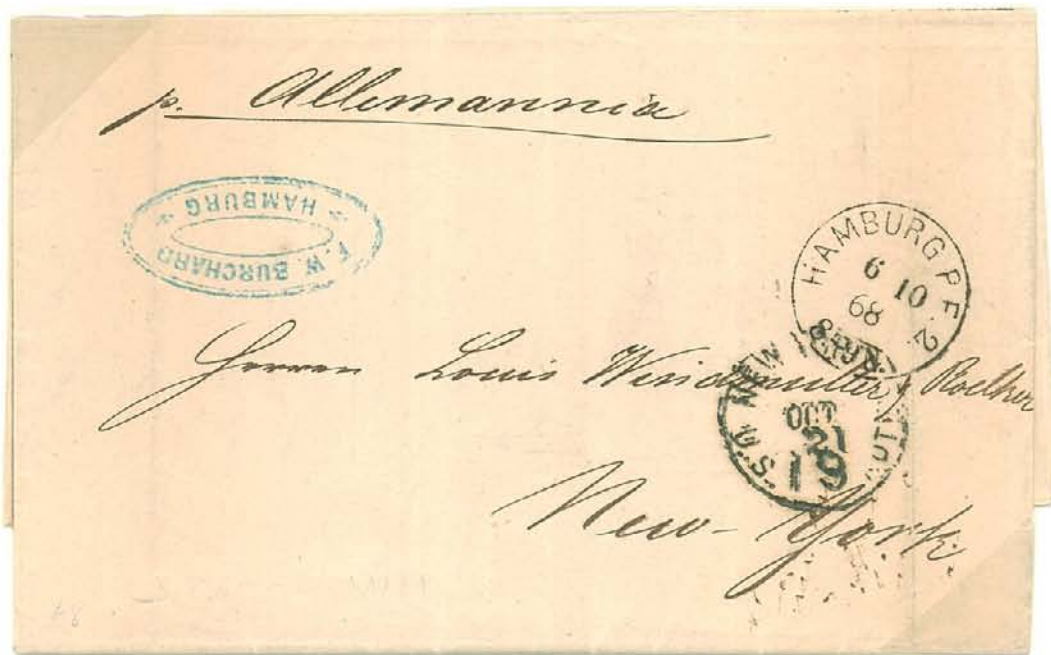 p. Allemannia
F. W. BURCHARD
HAMBURG
HAMBURG P. E. 2.
6 10
68
Herren Louis Windmuller & Roelker
NEW
OCT
21
19
U.S.
New-York.